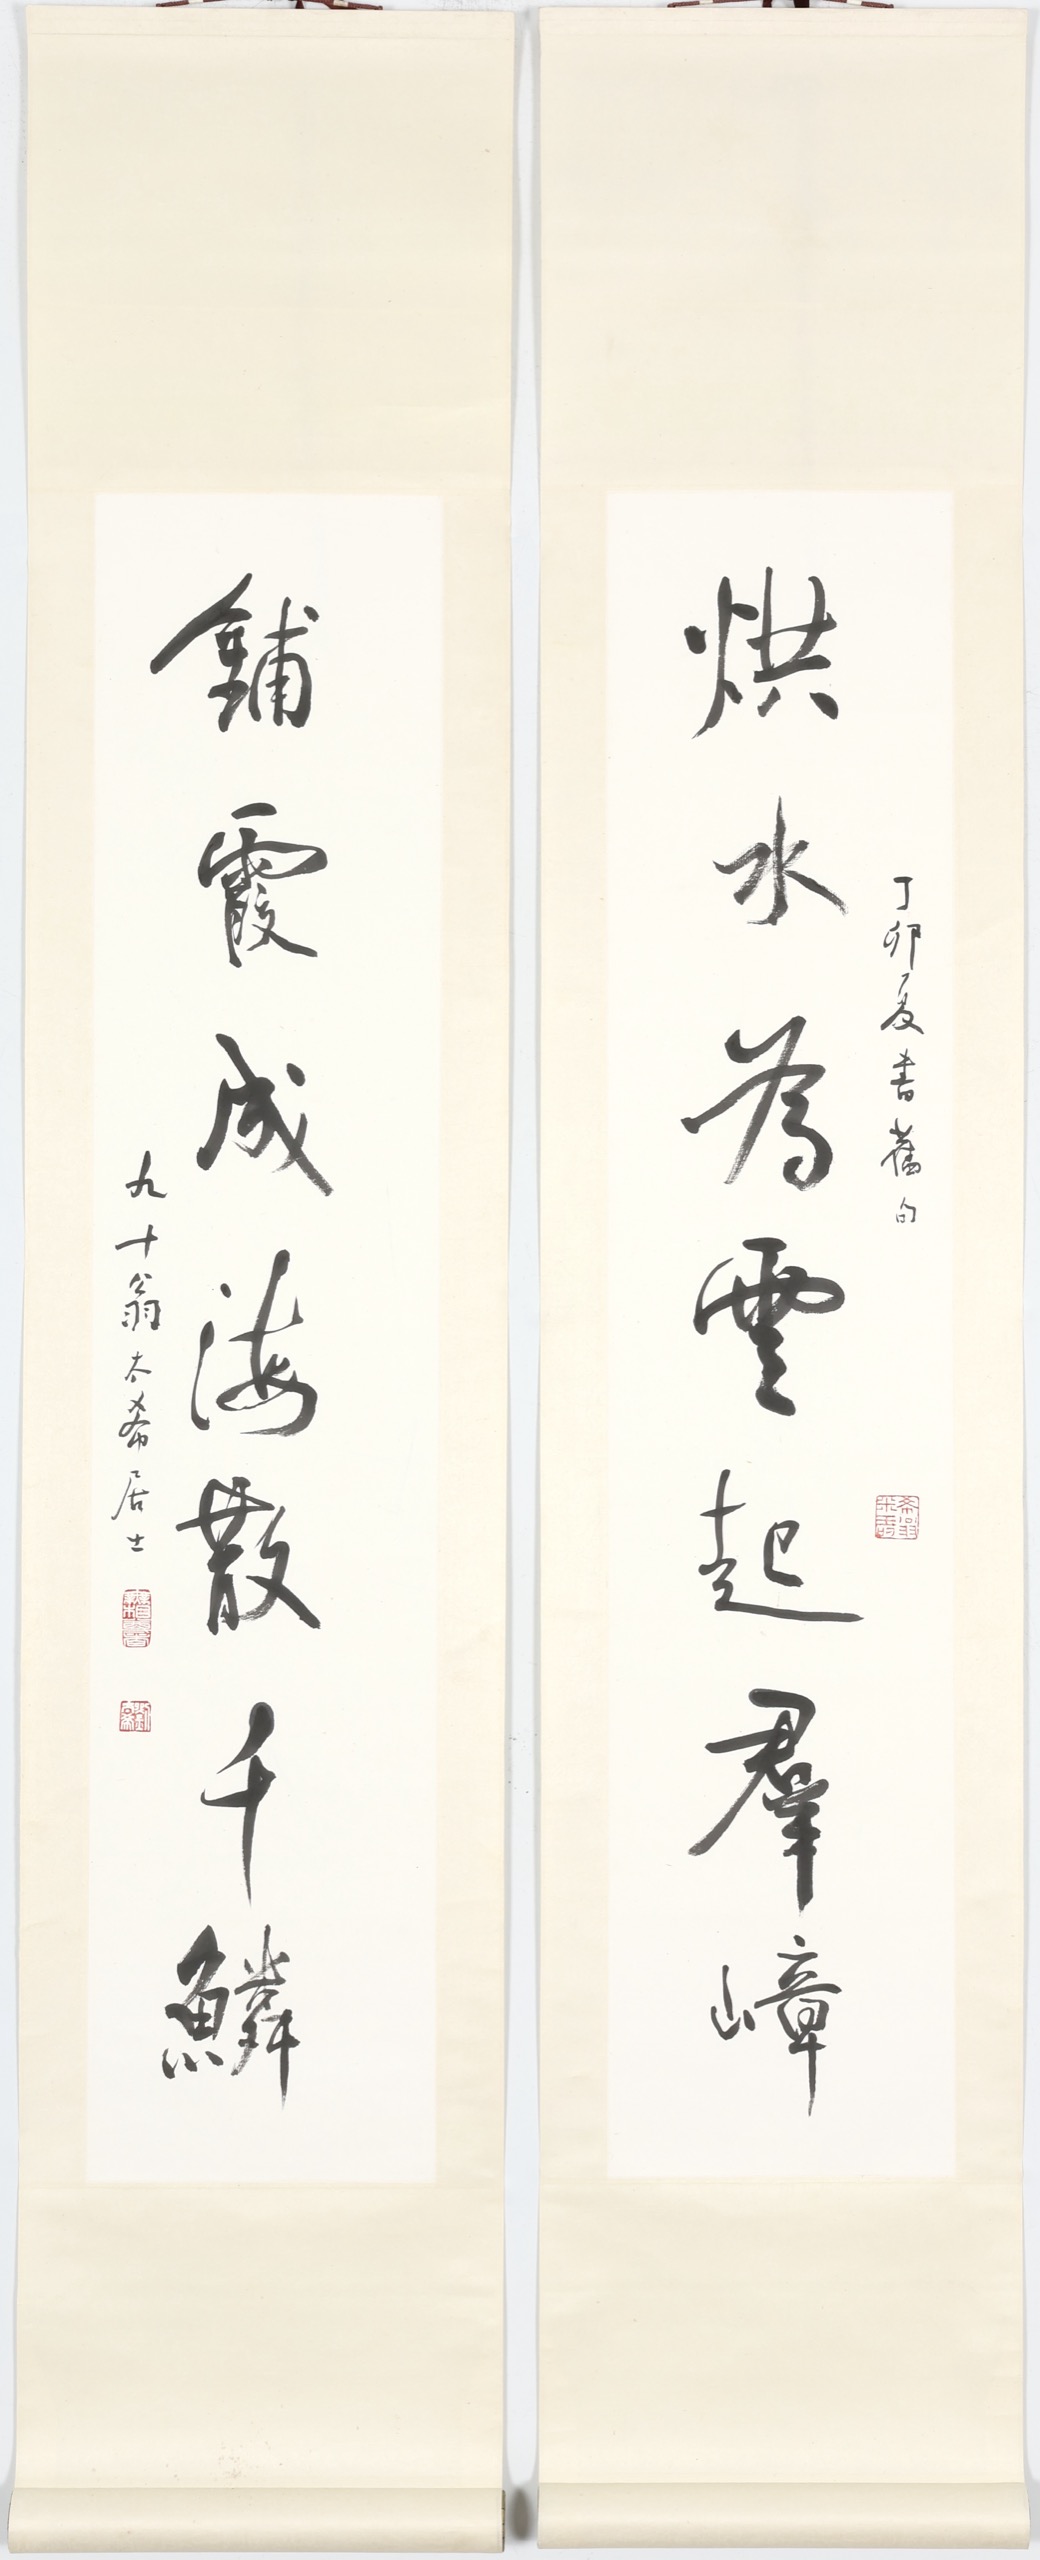 烘水為雲起羣嶂
丁卯夏書舊句
鋪霞成海散千鱗
九十翁太希居士